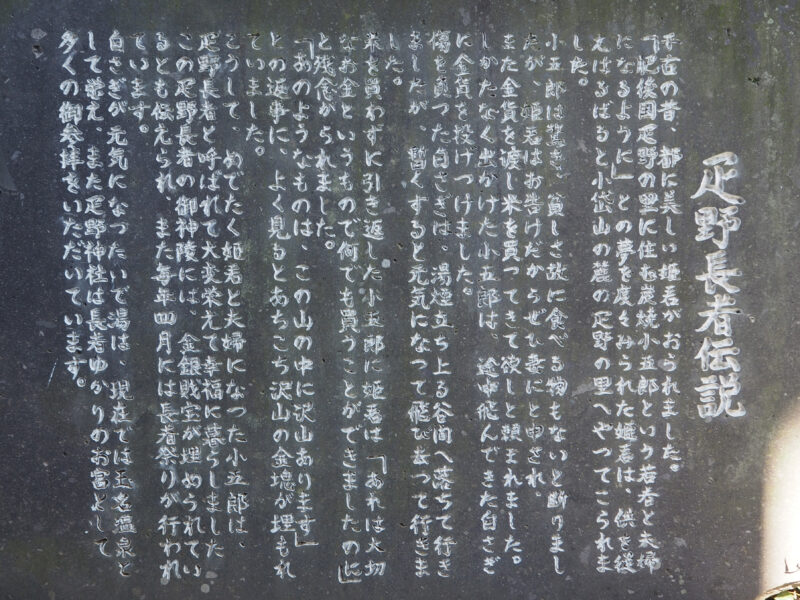 疋野長者伝説
千古の昔、都に美しい姫君がおられました。
「肥後国疋野の里に住む炭焼小五郎という若者と夫婦
になるように」との夢を度々みられた姫君は、供を従
えはるばると小岱山の麓の疋野の里へやってこられま
した。
小五郎は驚き、貧しさ故に食べる物もないと断りまし
たが、姫君はお告げだからぜひ妻にと申され、
また金貨を渡し米を買ってきて欲しと頼まれました。
しかたなく出かけた小五郎は、途中飛んできた白さぎ
に金貨を投げつけました。
傷を負った白さぎは、湯煙立ち上る谷間へ落ちて行き
ましたが、暫くすると元気になって飛び去って行きま
した。
米を買わずに引き返した小五郎に姫君は「あれは大切
なお金というもので何でも買うことができましたのに」
と残念がられました。
「あのようなものは、この山の中に沢山あります」
との返事に、よく見るとあちこち沢山の金塊が埋もれ
ていました。
そうして、めでたく姫君と夫婦になった小五郎は、
疋野長者と呼ばれて大変栄えて幸福に暮らしました
この疋野長者の御神陵には、金銀財宝が埋められてい
るとも伝えられ、また毎年四月には長者祭りが行われ
ています。
白さぎが元気になったいで湯は、現在では玉名温泉と
して栄え、また疋野神社は長者ゆかりのお宮として
多くの御参拝をいただいています。